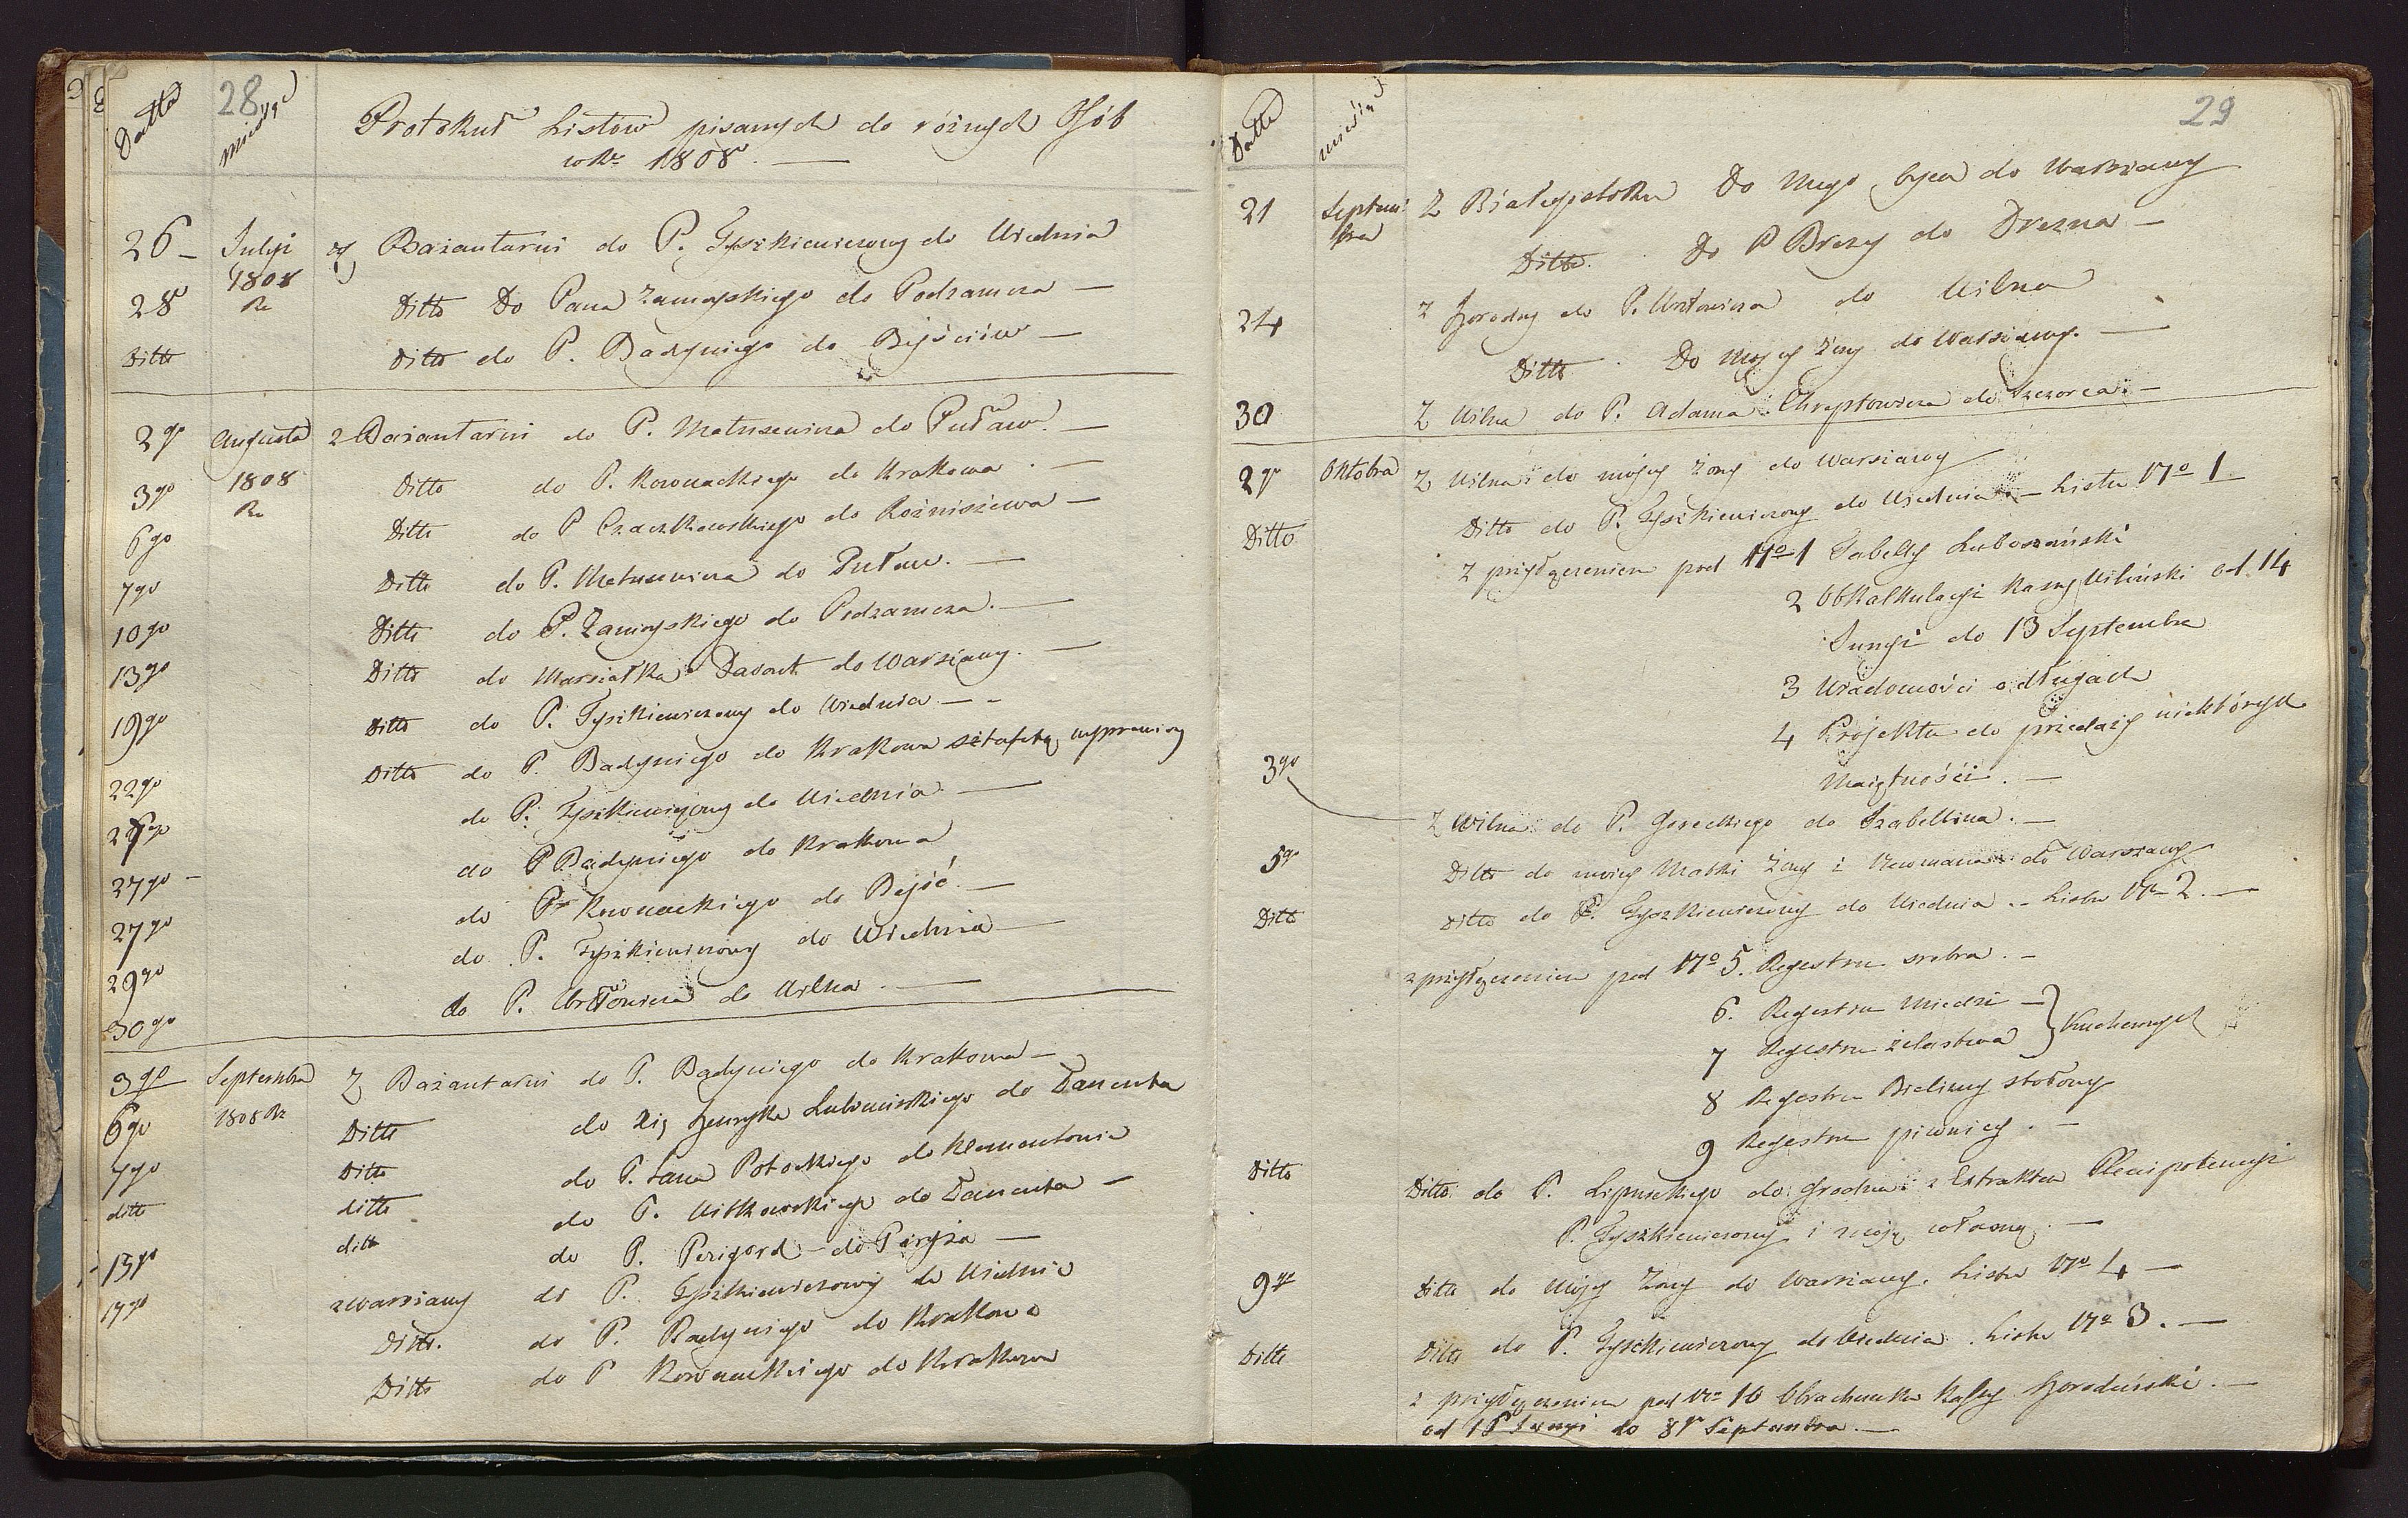 28
Datta miesiąc
Protokuł Listów pisanych do różnych Osób
w Rr. 1808.
26 Julji z Bażantarni do P. Tyszkiewiczowy do Wiednia
1808
28 Ditto Do Pana Zamoyskiego do Podzamcza
Ro
Ditto Ditto do P. Badyniego do Bejściów
2go Augusta z Bażantarni do P. Matusewicza do Puław.
3go 1808 Ditto do P. Kownackiego do Krakowa.
Ro
6go Ditto do P Czaczkowskiego do Rożniszewa
7go Ditto do P. Matusewicza do Puław.
10go Ditto do P. Zamoyskiego do Podzamcza.
13go Ditto do Marszałka Davout do Warszawy.
19go Ditto do P. Tyszkiewiczowy do Wiednia
22go Ditto do P. Badyniego do Krakowa sztafetą wyprawiony
do P. Tyszkiewiczowy do Wiednia
27go do P Badyniego do Krakowa
27go do Pr Kownackiego do Bejść.
29go do P. Tyszkiewiczowy do Wiednia
30go do P. Wrtowicza do Wilna.
3go Septembra Z Bażantarni do P. Badyniego do Krakowa
6go 1808 Ro Ditto do Xię Henryka Lubomirskiego do Łancuta
7go Ditto do P. Jana Potockiego do Klementowic
ditto ditto do P. Witkowskiego do Łancuta
ditto do P. Perigord do Paryża
13go z Warszawy do P. Tyszkiewiczowy do Wiednia
17go Ditto. do P. Badyniego do Krakowa
Ditto do P Kownackiego do Krakowa
29
Datta miesiąc
21 Septembra Z Białegostoku Do Mego Oyca do Warszawy
Ditto. Do P Brezy do Drezna
24 Z Horodny do P. Wrtowicza do Wilna
Ditto. Do Mojej żony do Warszawy.
30 Z Wilna do P. Adama Chreptowicza do Szczorca.
2go Oktobra Z Wilna do mojey żony do Warszawy
Ditto Ditto do P. Tyszkiewiczowy do Wiednia. Listu No 1
z przyłączeniem pod No 1 Tabelly Luboszański
2 Obkalkulacyi Kassy Wileński od 14
Junyi do 13 Septembra
3 Wiadomości o długach
4 Projektu do przedaży niektórych
Maiętności.
3go Z Wilna do P. Goreckiego do Izabellina.
5go Ditto do mojey Matki żony i Newmana do Warszawy
Ditto Ditto do P. Tyszkiewiczowy do Wiednia. Listu No 2.
z przyłączeniem pod No 5. Regestru srebra.
6. Regestru Miedzi
7 Regestru żelastwa } Kuchennych
8 Regestru Bielizny stołowy
9 Regestru piwnicy.
Ditto Ditto do P. Lipnickiego do Grodna z Extraktem Plenipotencyi
P. Tyszkiewiczowy i moją własną.
9go Ditto do Mojey żony do Warszawy. Listu No 4
Ditto Ditto do P. Tyszkiewiczowy do Wiednia. Listu No 3.
z przyłączeniem pod No 10 Obrachunku Kassy Horodeński.
od 1 Junyi do 8 Septembra.